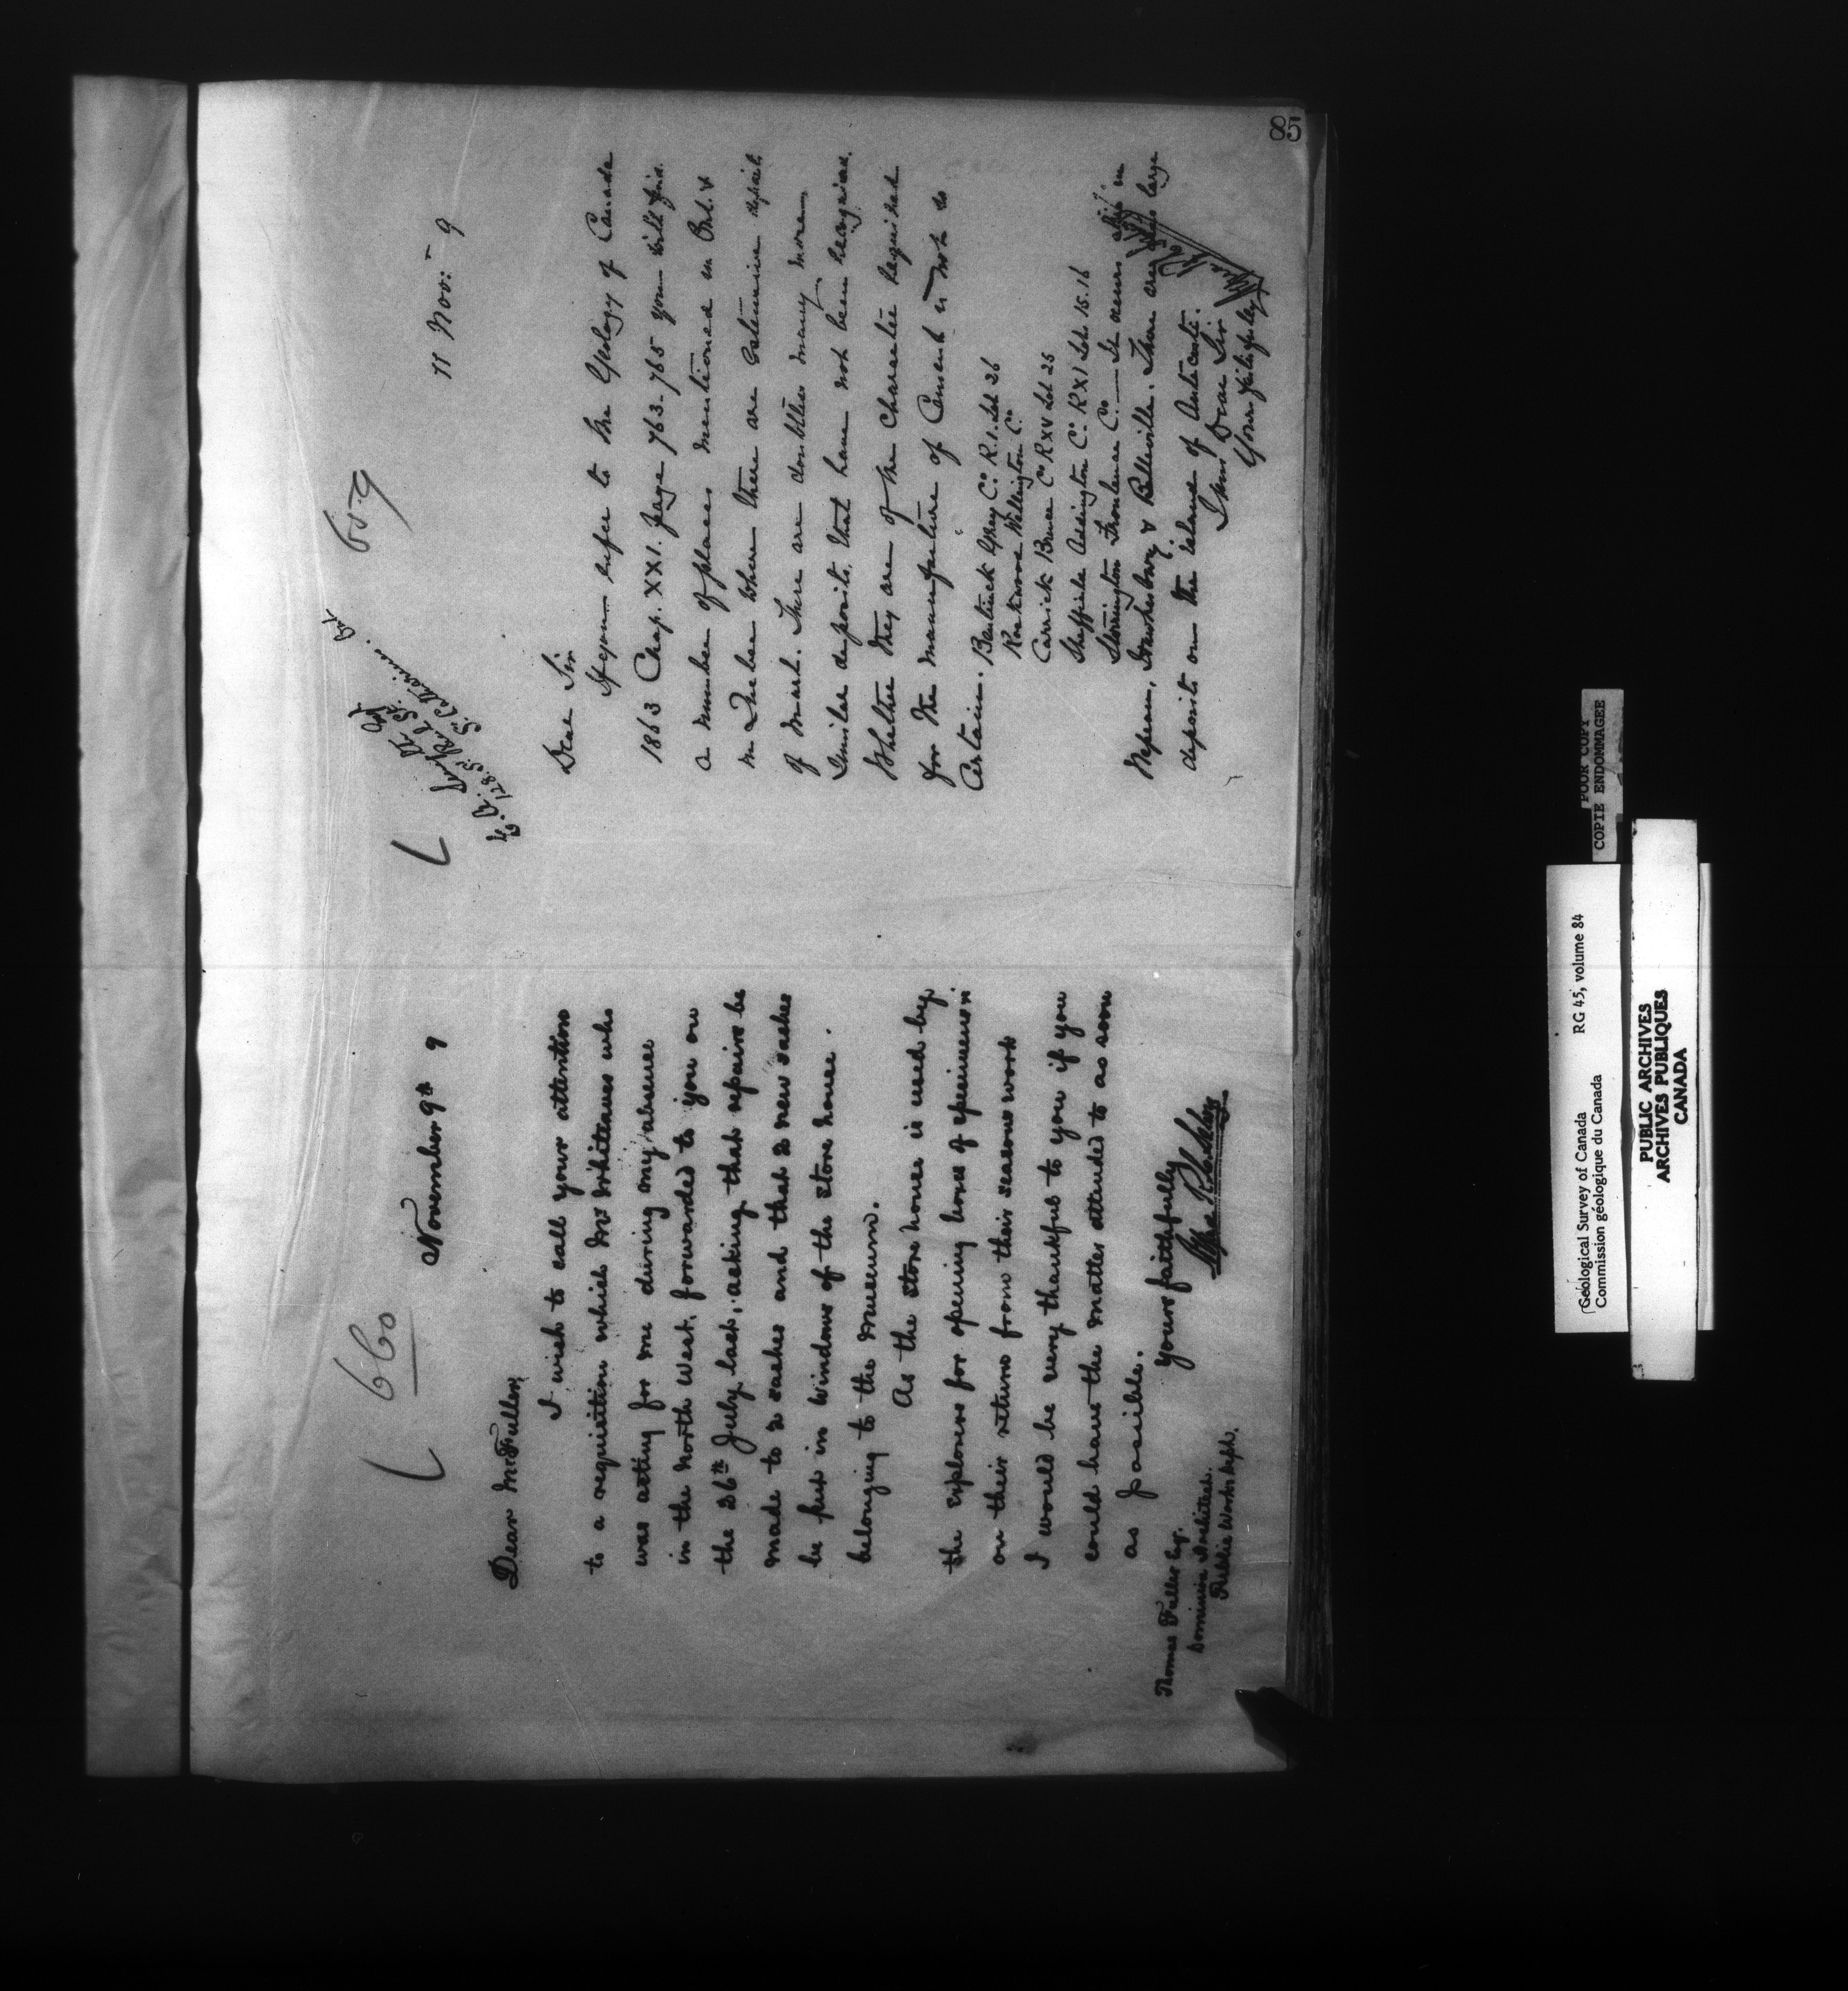 660
November 9th 9
Dear Mr Fuller,
I wish to call your attention
to a requisition which Mr Whiteaves who
was acting for me during my absence
in the North West, forwarded to you on
the 26th July last, asking that repairs be
made to 2 sashes and that 2 new sashes
be put in windows of the store house
belonging to the museum.
As the store house is used by
the explorers for opening boxes of specimens
on their return from their seasons work
I would be very thankful to you if you
could have the matter attended to as soon
as possible.
Yours faithfully
Thomas Fuller Esq.
Dominion Architect.
Public Works Dept.
659
11 Nov. 9
St Catharines. Ont
Dear Sir
If you refer to the Geology of Canada
1863 Chap. XXI. page 763-765 you will find
a number of places mentioned in Ont. &
in Quebec where there are extensive deposits
of marl. There are doubtless many more
similar deposits that have not been recognised.
Whether they are of the character required
for the manufacture of Cement is not so
certain. Bentinck Grey Co. R.1. Lot 26
Rockwood Wellington Co.
Carrick Bruce Co R XV Lot 25
Sheffield Addington Co. R XI Lot 15.16
Storrington Frontenac Co. — It occurs also in
Nepean, Hawkesbury & Belleville. There are also large
deposits on the island of Anticosti.
I am Dear Sir
Yours faithfully
85
Geological Survey of Canada RG 45, volume 84
Commission géologique du Canada
POOR COPY
COPIE ENDOMMAGEE
PUBLIC ARCHIVES
ARCHIVES PUBLIQUES
CANADA